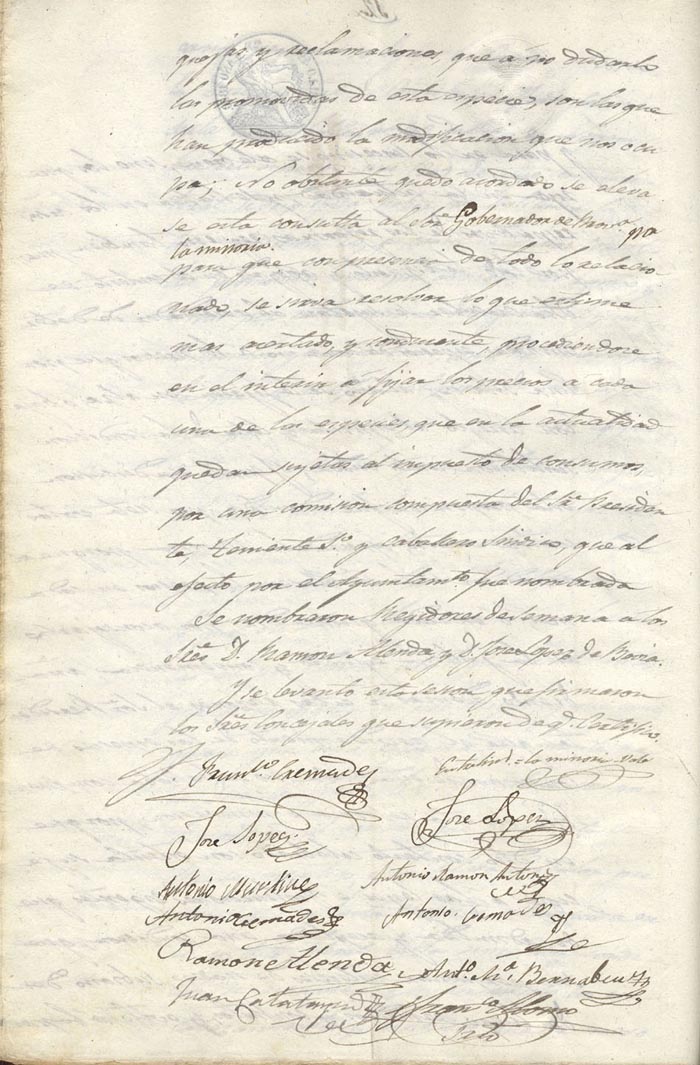 quejas y reclamaciones, que á no dudarlo
las promovidas de esta especie, son las que
han producido la modificacion que nos ocu
pa; No obstante quedo acordado se eleva
se esta consulta al Sor. Gobernador de Prova. pra
la minoria
para que con presencia de todo lo relacio
nado, se sirva resolver lo que estime
mas acertado, y conducente, procediendose
en el interin a fijar los precios a cada
una de las especies, que en la actualidad
quedan sujetas al impuesto de consumos,
por una comision compuesta del Sr. Presiden
te, Teniente 1o. y Caballero Sindico, que al
efecto por el Ayuntamto. fue nombrada
Se nombraron Regidores de semana a los
Sres. D. Ramon Alenda, y D. Jose Lopez de Bavia.
Y se levanto esta sesion que firmaron
los Sres. Concejales que supieron de q. Certifico.
la minoria vale
Cremades
Jose Lopez
Jose Lopez
Antonio Ramon Antonio
Antonio Cremades
Antonio Cremades
Ramon Alenda
Anto. Ma. Bernabeu
Juan Calatayud
Franco. Alonso
Srio